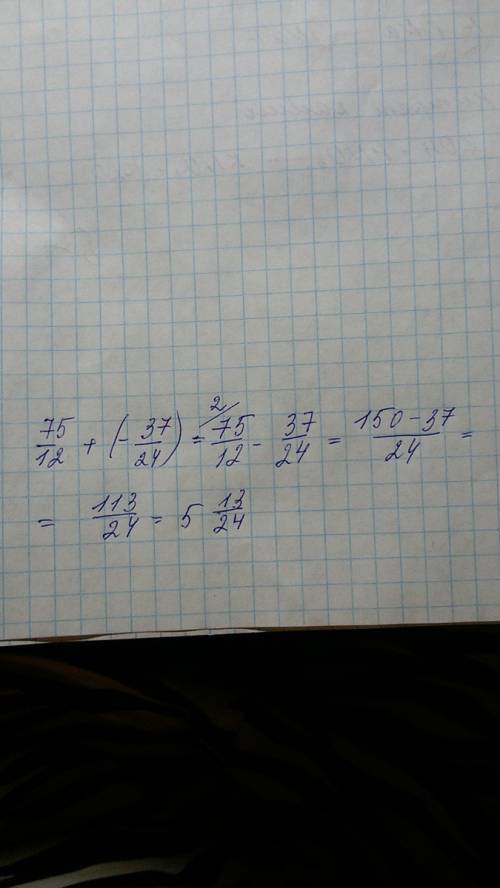 75/12 + (- 37/24) = 75/12 ² - 37/24 = 150-37/24 =
= 113/24 = 5 13/24